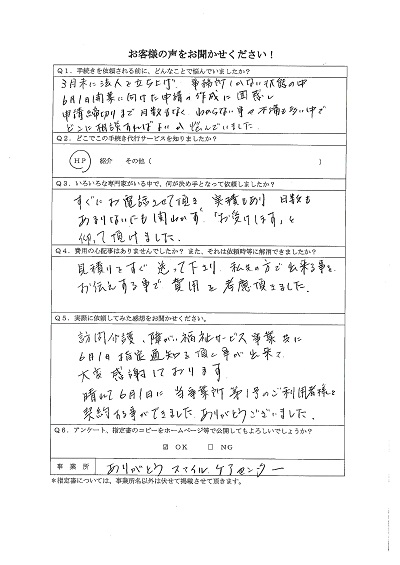 お客様の声をお聞かせください！
Q１．手続きを依頼される前に、どんなことで悩んでいましたか？
３月末に法人を立ち上げ、事務所しかない状態の中
６月１日開業に向けた申請の作成に困惑し
申請締切りまで日数もなく、わからない事や不備も多い中で
どこに相談すればよいか悩んでいました。
Q２．どこでこの手続き代行サービスを知りましたか？
HP　紹介　その他（　　　）
Q３．いろいろな専門家がいる中で、何が決め手となって依頼しましたか？
すぐにお電話させて頂き、実績もあり日数も
あまりないにも関わらず「お受けします」と
仰って頂けました。
Q４．費用の心配事はありませんでしたか？また、それは依頼時等に解消できましたか？
見積りをすぐ送って下さり、私達の方で出来る事を
お伝えする事で費用を考慮頂きました。
Q５．実際に依頼してみた感想をお聞かせください。
訪問介護、障がい福祉サービス事業共に
６月１日指定通知を頂く事が出来て
大変感謝しております
晴れて６月１日に当事業所第１号のご利用者様と
契約する事ができました。ありがとうございました。
Q６．アンケート、指定書のコピーをホームページ等で公開してもよろしいでしょうか？
☑ OK　□ NG
事業所　ありがとうスマイルケアセンター
＊指定書については、事業所名以外は伏せて掲載させて頂きます。